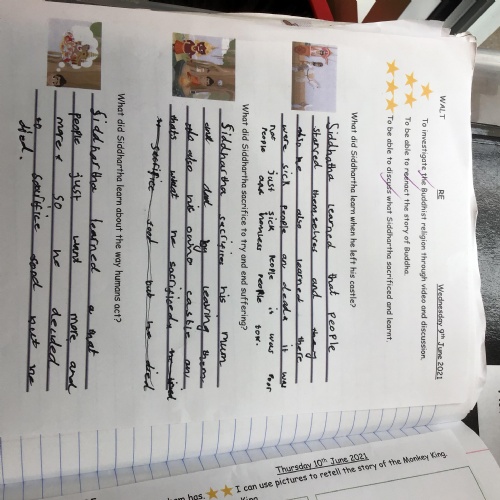 WALT RE Wednesday 9th June 2021
To investigate the Buddhist religion through video and discussion.
To be able to reenact the story of Buddha.
To be able to discuss what Siddhartha sacrificed and learnt.
What did Siddhartha learn when he left his castle?
Siddhatha learned that people
starved themselves and they
also he also learned there
were sick people an deade it was
not just sick people it was poor
people and homless people too.
What did Siddhartha sacrifice to try and end suffering?
Siddhartha sacrifies his mum
and dad by leaving them
also his castle an
thats what he sacrificed
sacrifice food but he died
What did Siddhartha learn about the way humans act?
Siddhartha learned a that
people just want more and
more so he decided
to sacrifice food but he
died.
Thursday 10th June 2021
I can use pictures to retell the story of the Monkey King.